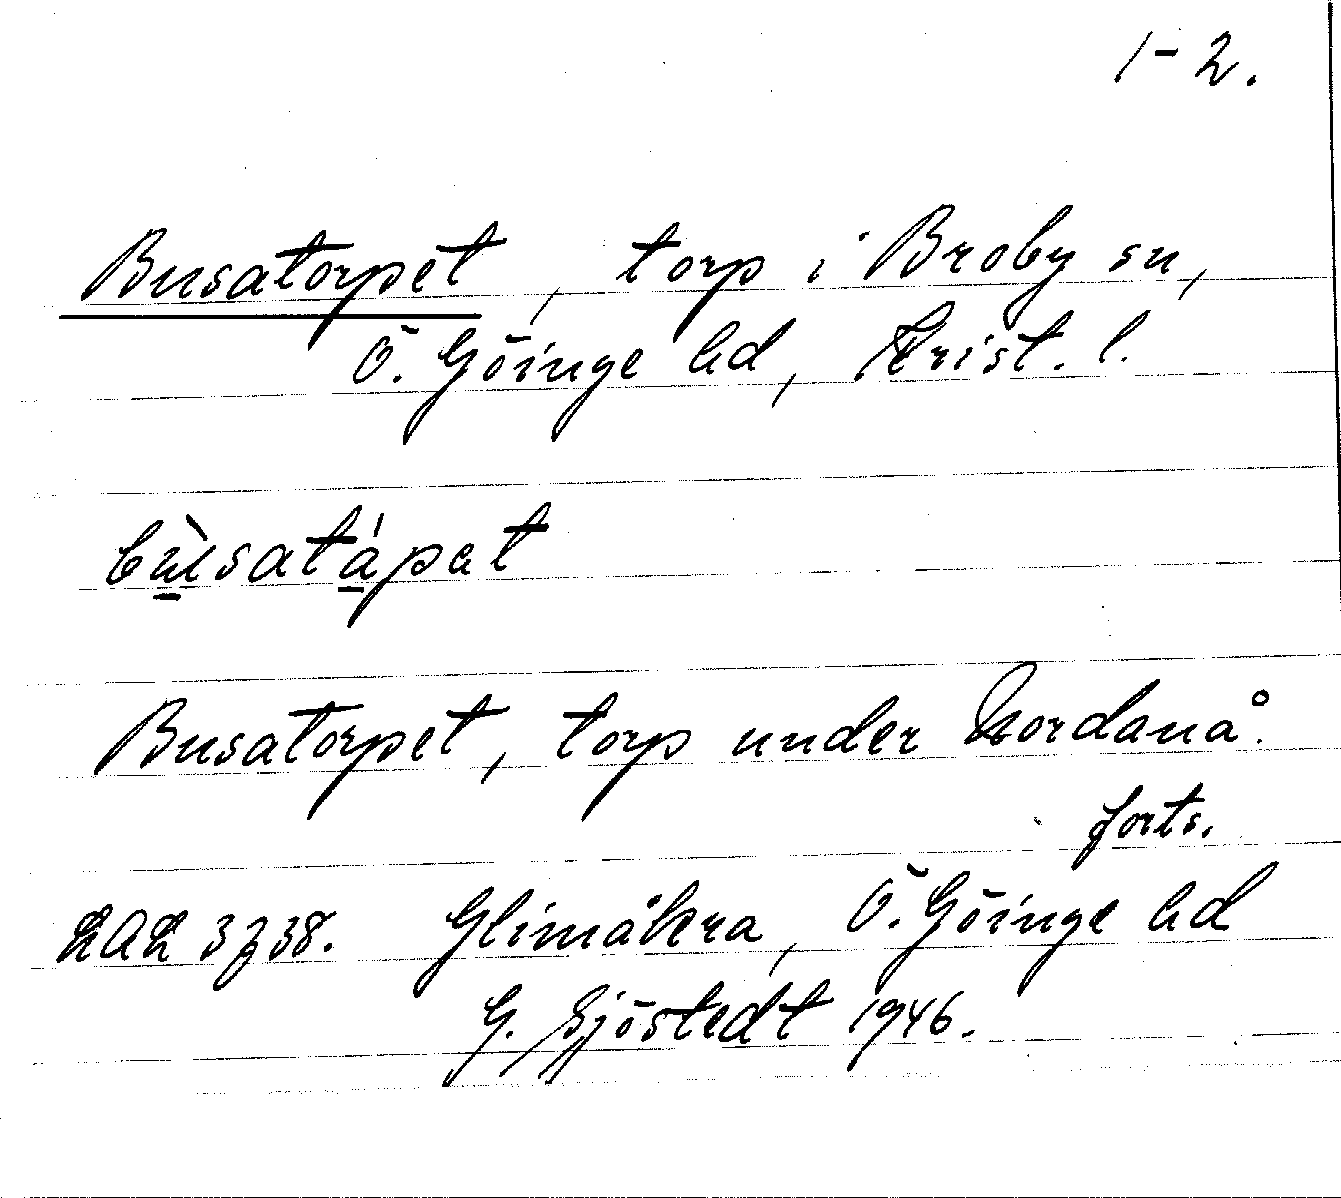 1-2.
Busatorpet, torp i Broby sn,
Ö. Göinge hd, Krist. l.
bùsatápat
Busatorpet, torp under Nordanå.
forts.
LAL 3238. Glimåkra, Ö. Göinge hd
G. Sjöstedt 1946.